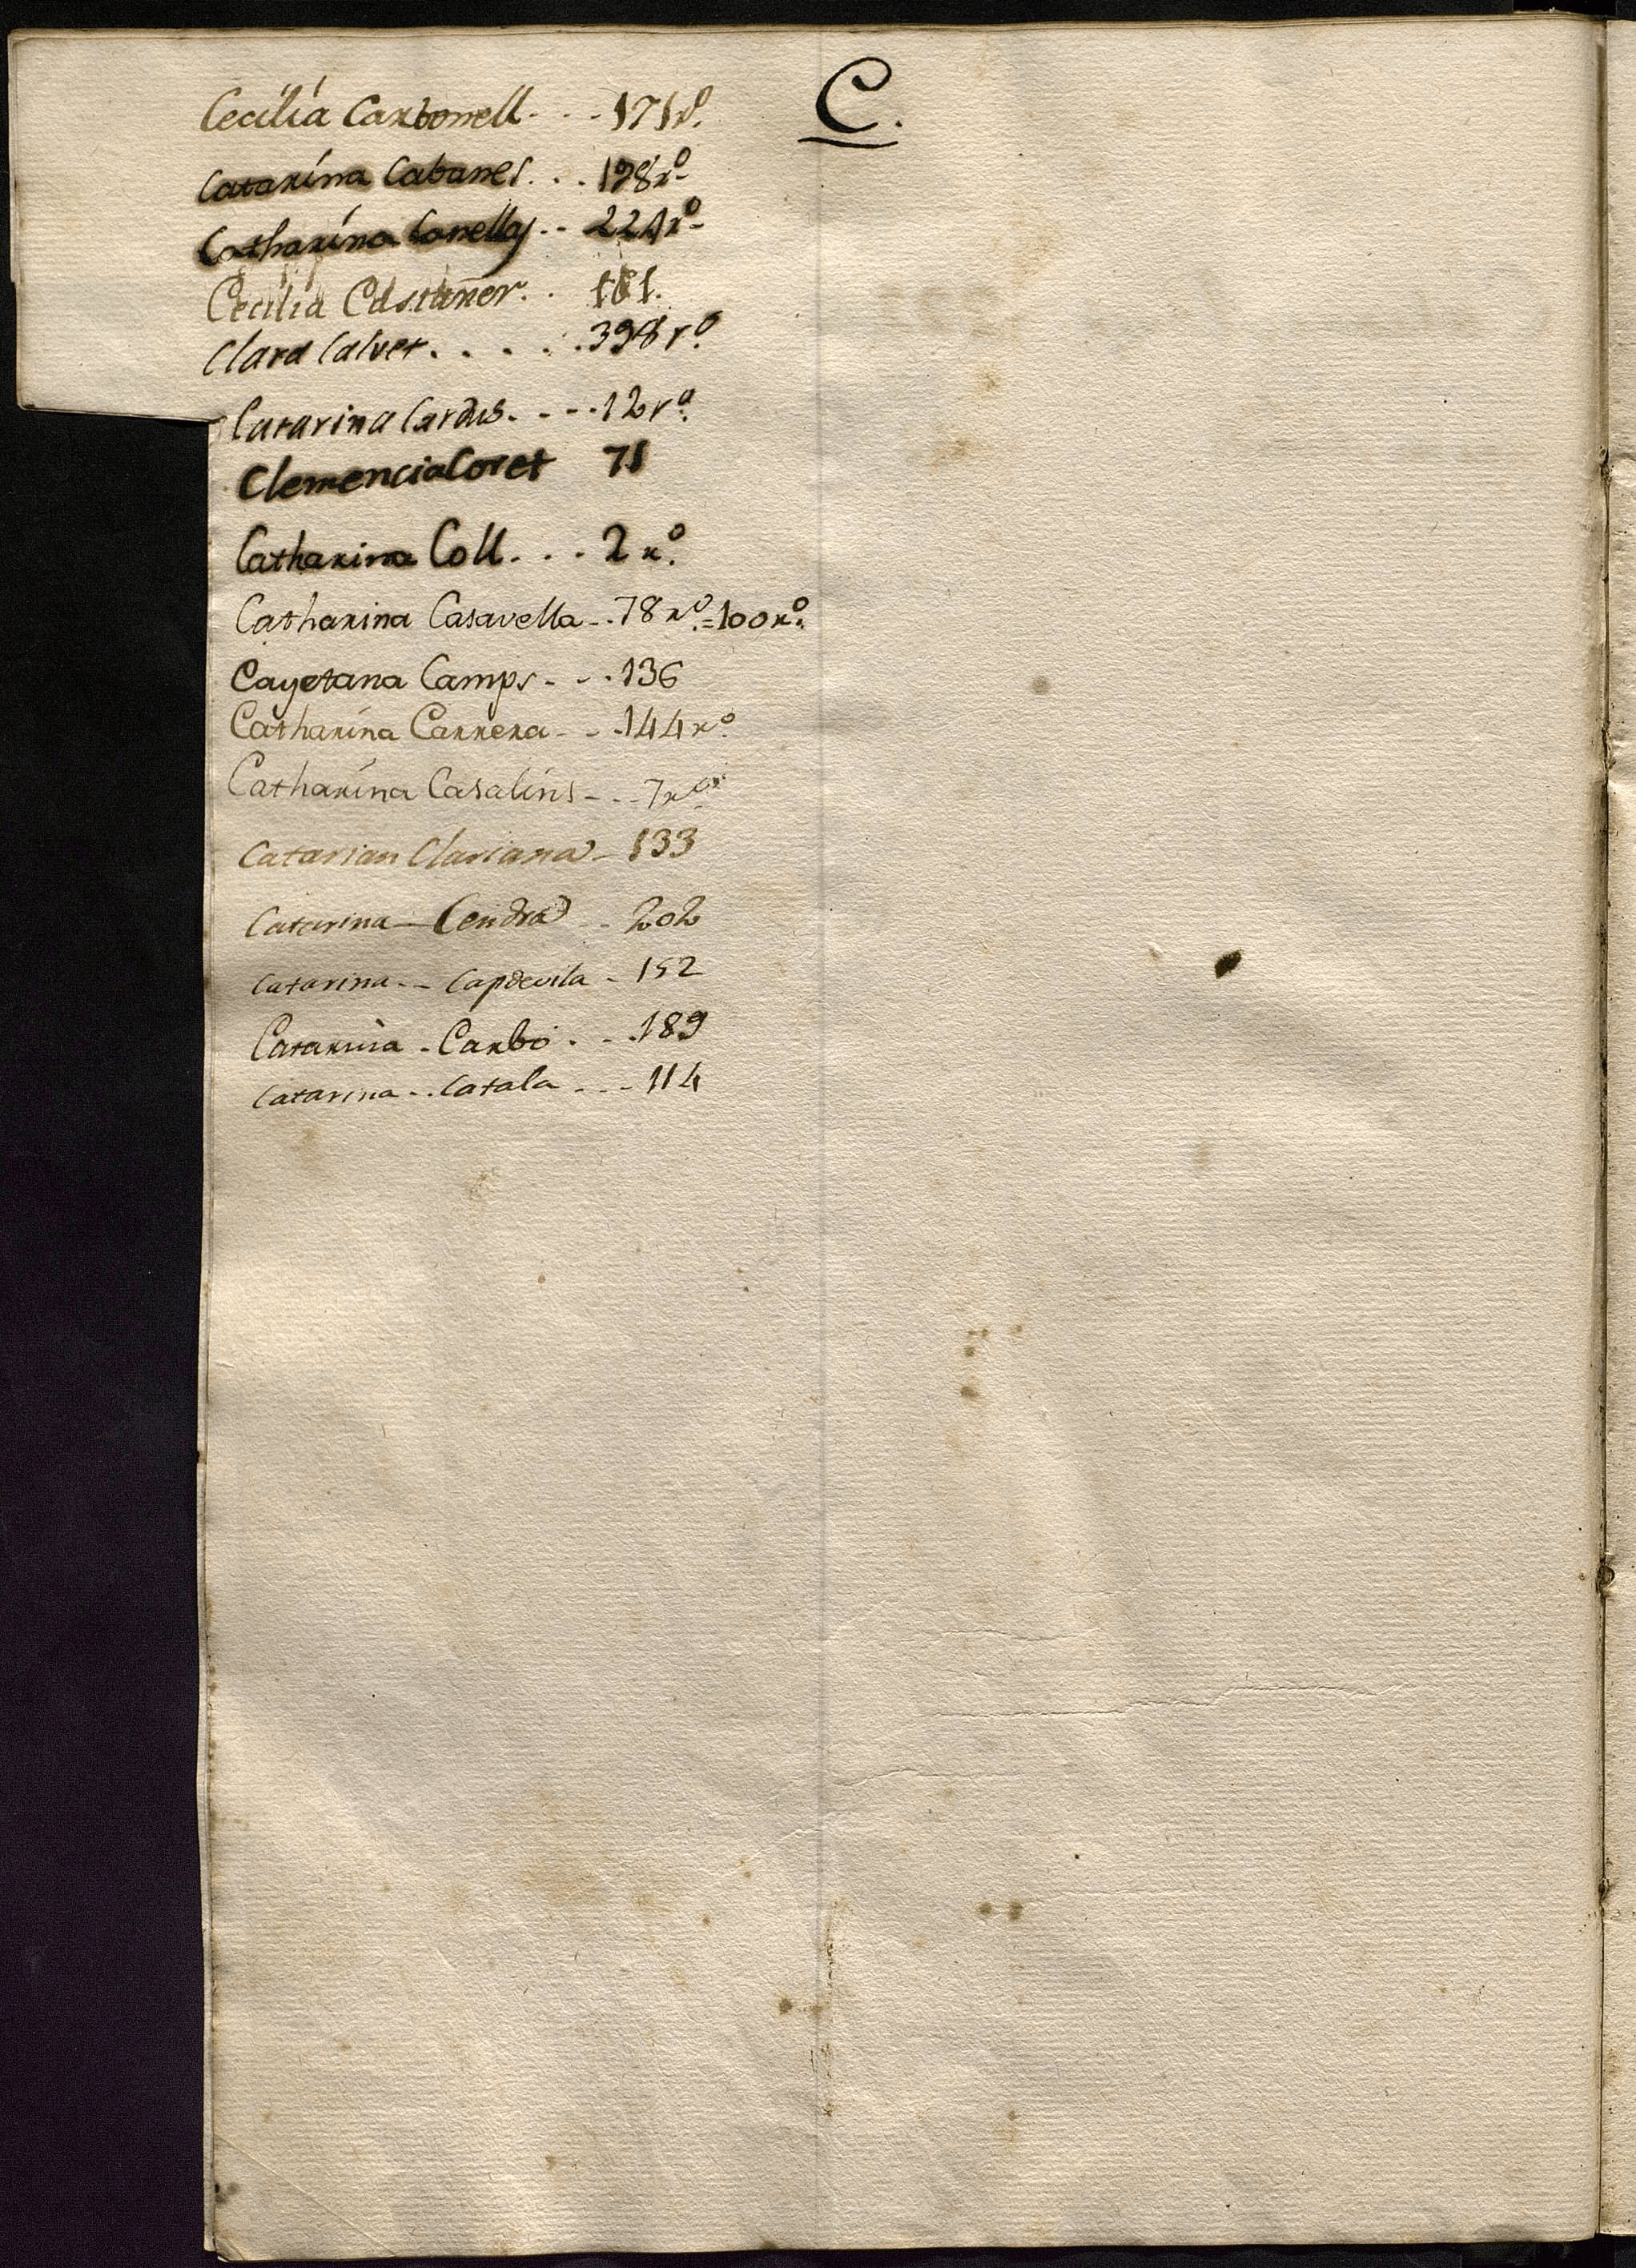 C.
Cecilia Carbonell - - - 171 rº.
Catarina Cabanes . . . 198 rº
Catharina Canellas - - 224 rº
Cecilia Castañer . . 161.
Clara Calvet . . . . . . 398 rº
Catarina Cardus - - - - 12 rº
Clemencia Coret 71
Catharina Coll . . . 2 rº.
Catharina Casavella - - 78 rº = 100 rº.
Cayetana Camps - - - 136
Catharina Carrera - - - 144 rº
Catharina Casalins - - - 7 rº
Catarian Clariana - 133
Catarina - Cendra - - 202
Catarina - - Capdevila - 152
Catarina - Carbó . - . 189
Catarina - . Catala - - - 114